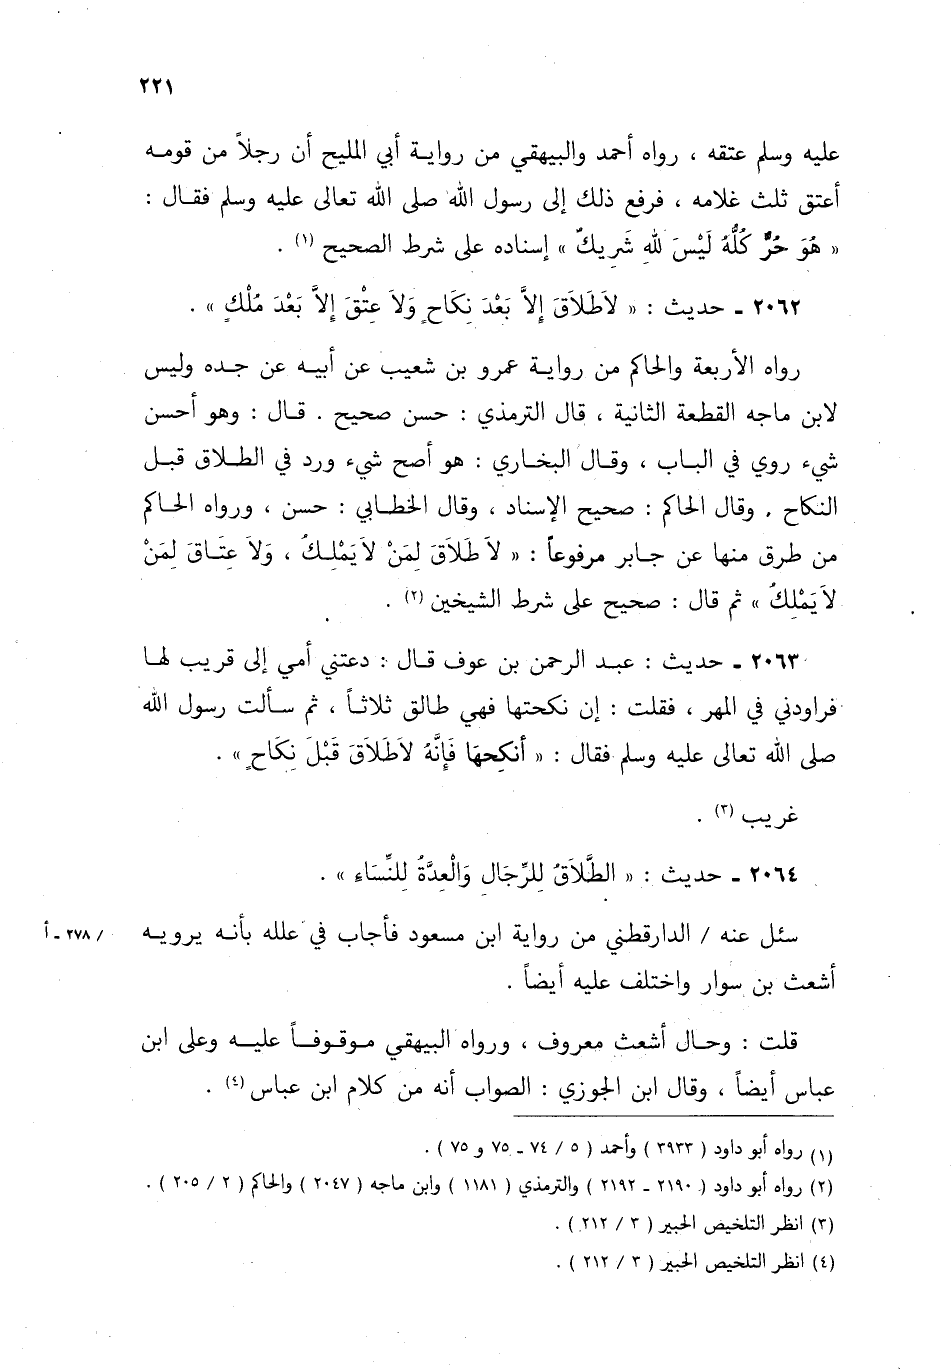 ٢٢١
عليه وسلم عتقه ، رواه أحمد والبيهقي من روايـة أبي المليح أن رجلاً من قومـه
أعتق ثلث غلامه ، فرفع ذلك إلى رسول الله صلى الله تعالى عليه وسلم فقـال :
« هُوَ حُرٌّ كُلُّهُ لَيْسَ للهِ شَرِيكٌ » إسناده على شرط الصحيح (١) .
٢٠٦٢ ـ حديث : « لاَطَلاَقَ إلاَّ بَعْدَ نِكَاحٍ وَلاَ عِتْقَ إلاَّ بَعْدَ مُلْكٍ » .
رواه الأربعة والحاكم من روايـة عمرو بن شعيب عن أبيـه عن جـده وليس
لابن ماجه القطعة الثانية ، قال الترمذي : حسن صحيح . قـال : وهو أحسن
شيء روي في البـاب ، وقـال البخـاري : هو أصح شيء ورد في الطـلاق قبـل
النكاح . وقال الحاكم : صحيح الإسناد ، وقال الخطـابي : حسن ، ورواه الحـاكم
من طرق منها عن جـابر مرفوعاً : « لاَ طَلاَقَ لِمَنْ لاَيَمْلِـكُ ، وَلاَ عِتَـاقَ لِمَنْ
لاَيَمْلِكُ » ثم قال : صحيح على شرط الشيخين (٢) .
٢٠٦٣ ـ حديث : عبـد الرحمن بن عوف قـال : دعتني أمي إلى قريب لهـا
فراودني في المهر ، فقلت : إن نكحتها فهي طالق ثلاثـاً ، ثم سـألت رسول الله
صلى الله تعالى عليه وسلم فقال : « أنكِحهَا فَإنَّهُ لاَطَلاَقَ قَبْلَ نِكَاحٍ » .
غريب (٣) .
٢٠٦٤ ـ حديث : « الطَّلاَقُ لِلرِّجَالِ وَالْعِدَّةُ لِلنِّسَاءِ » .
سئل عنه / الدارقطني من رواية ابن مسعود فأجاب في علله بأنـه يرويـه / ٢٧٨ ـ أ
أشعث بن سوار واختلف عليه أيضاً .
قلت : وحـال أشعث معروف ، ورواه البيهقي مـوقـوفـاً عليـه وعلى ابن
عباس أيضاً ، وقال ابن الجوزي : الصواب أنه من كلام ابن عباس (٤) .
(١) رواه أبو داود ( ٣٩٣٣ ) وأحمد ( ٥ / ٧٤ ـ ٧٥ و ٧٥ ) .
(٢) رواه أبو داود ( ٢١٩٠ ـ ٢١٩٢ ) والترمذي ( ١١٨١ ) وابن ماجه ( ٢٠٤٧ ) والحاكم ( ٢ / ٢٠٥ ) .
(٣) انظر التلخيص الحبير ( ٣ / ٢١٢ ) .
(٤) انظر التلخيص الحبير ( ٣ / ٢١٢ ) .